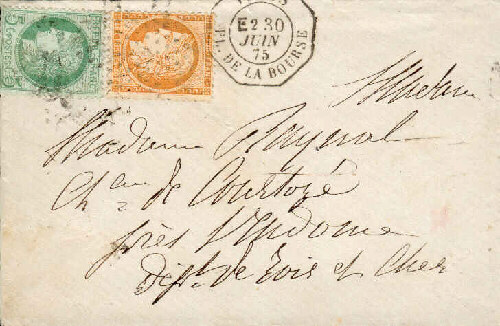 E2 30
JUIN
75
PL. DE LA BOURSE
Madame
Madame Raynal
Ch.au de Courtozé
près Vendome
Dépt. de Loir et Cher